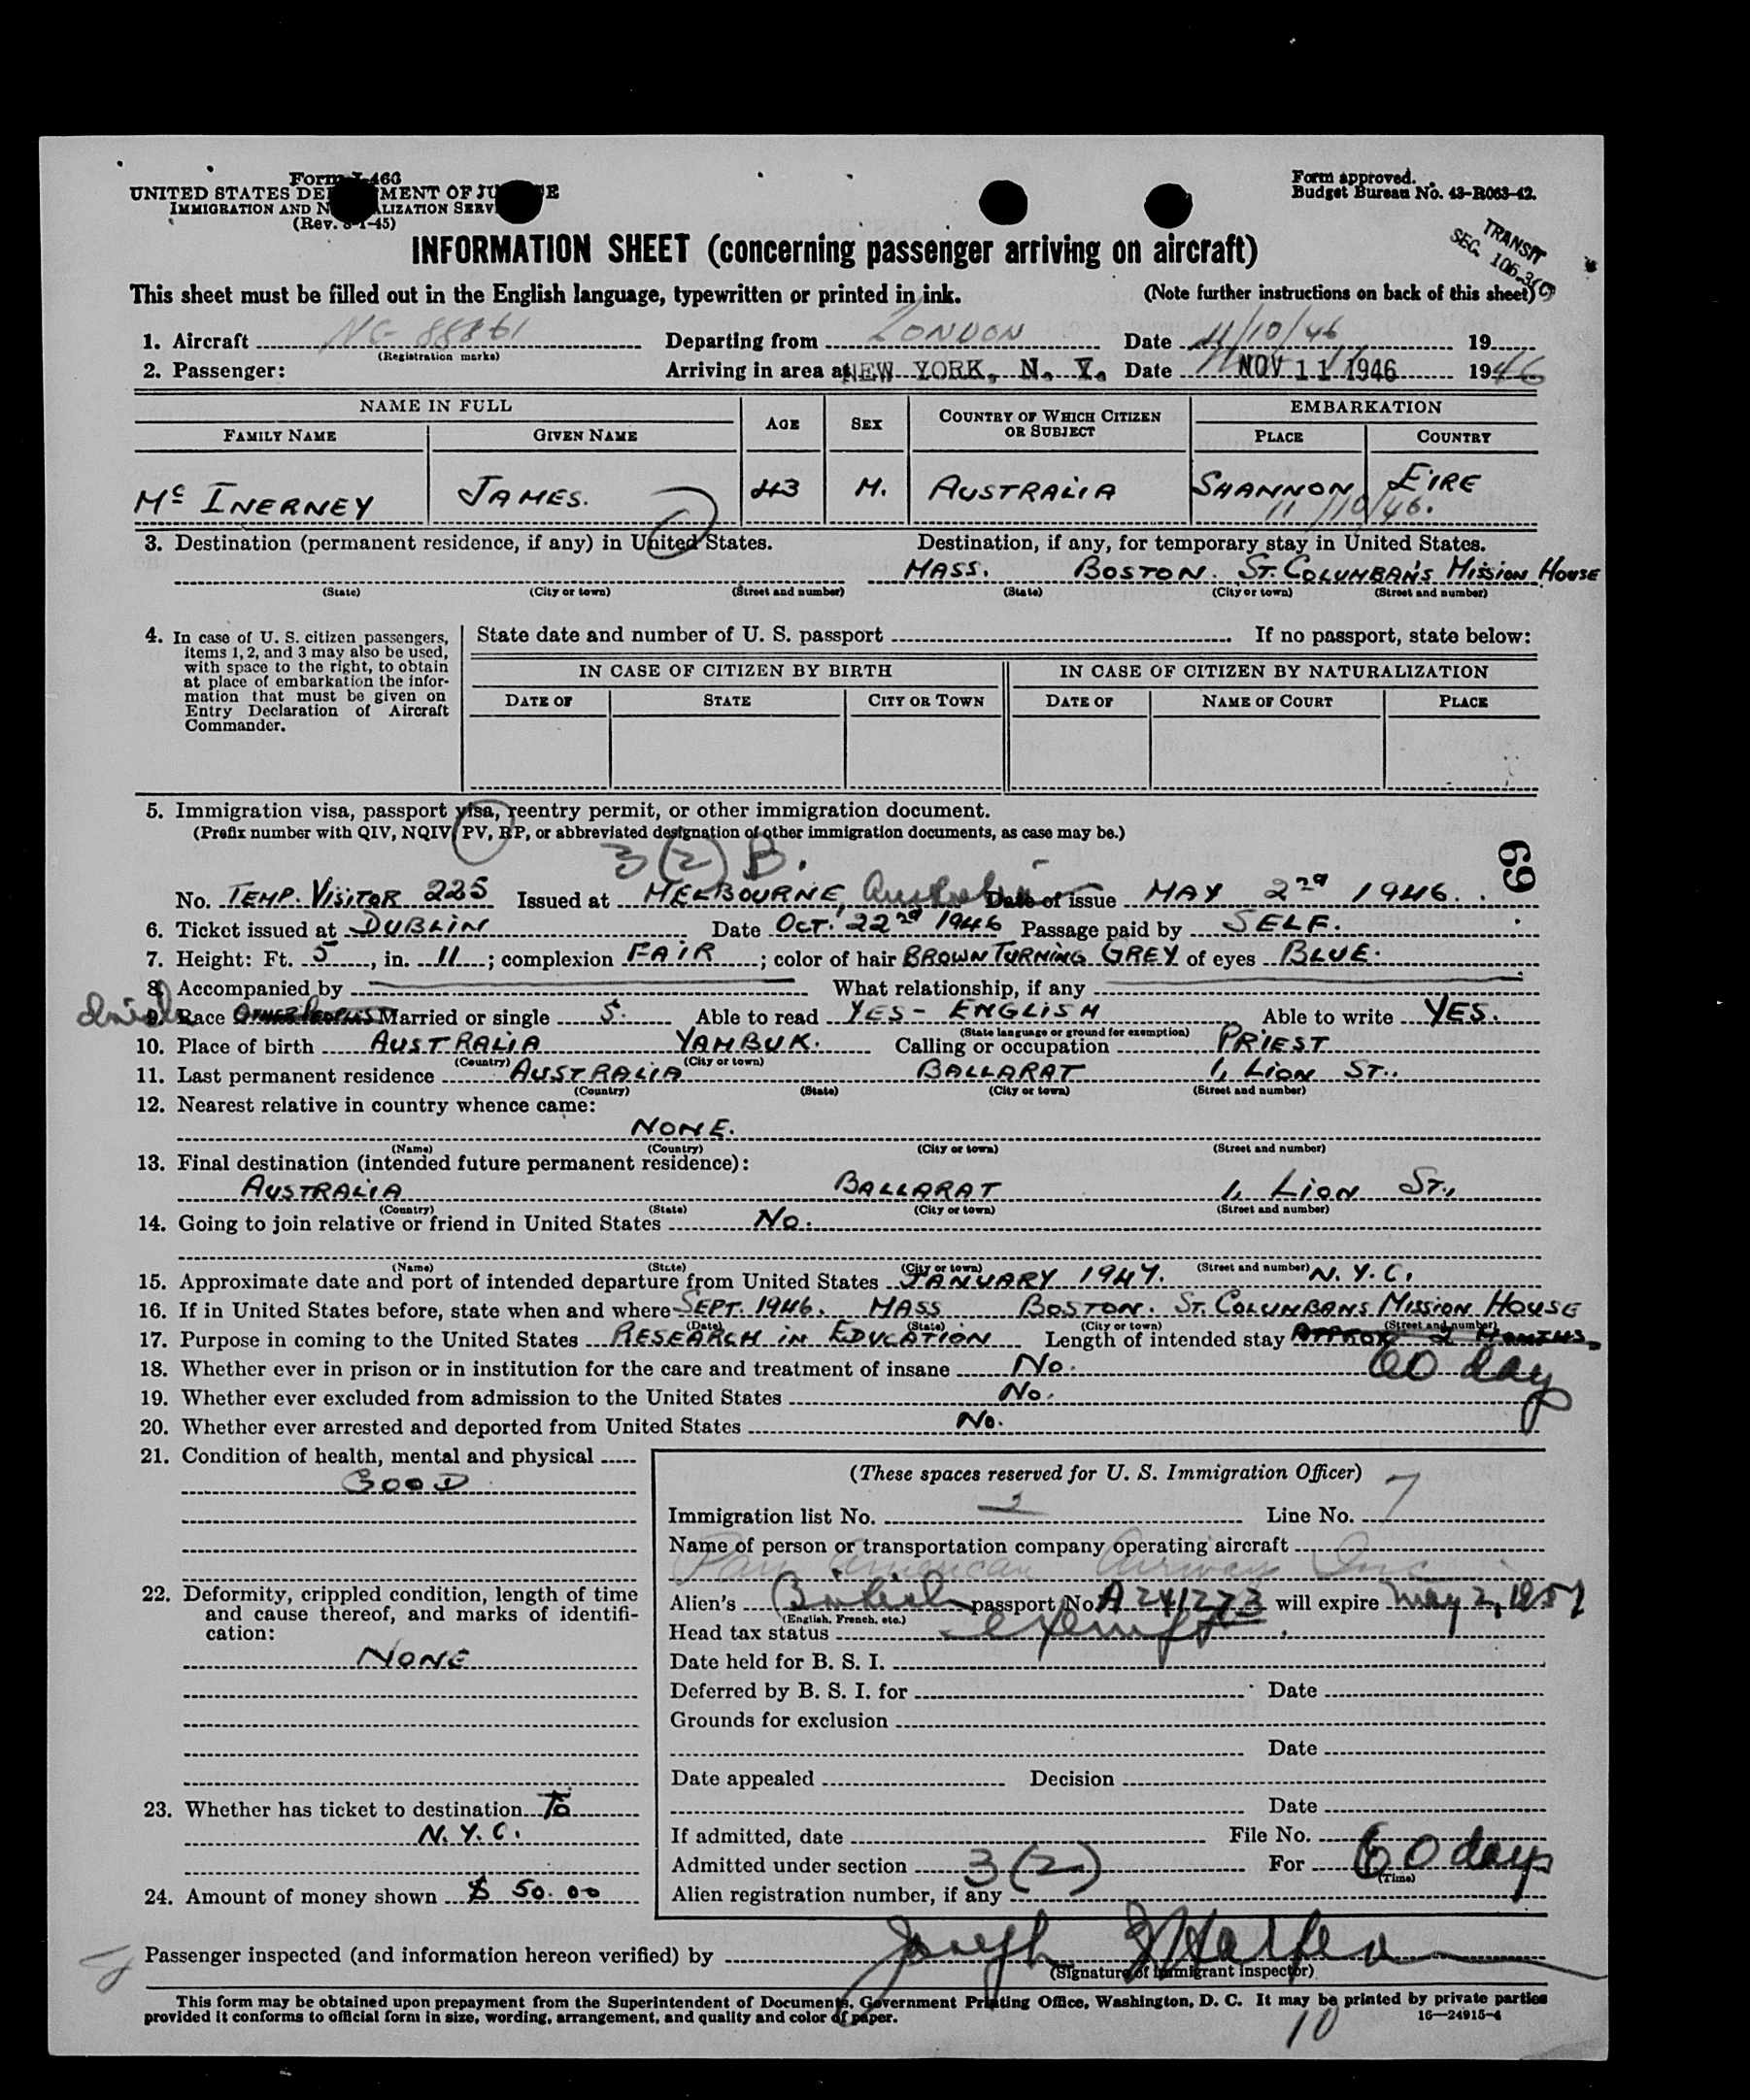 Form I-466
UNITED STATES DEPARTMENT OF JUSTICE
IMMIGRATION AND NATURALIZATION SERVICE
(Rev. 8-1-45)
Form approved.
Budget Bureau No. 43-R063-42.
TRANSIT
SEC. 105.3(C)
INFORMATION SHEET (concerning passenger arriving on aircraft)
This sheet must be filled out in the English language, typewritten or printed in ink. (Note further instructions on back of this sheet)
1. Aircraft NC-88861 Departing from LONDON Date 11/10/46 19
(Registration marks)
2. Passenger: Arriving in area at NEW YORK, N. Y. Date NOV 11 1946 1946
NAME IN FULL AGE SEX COUNTRY OF WHICH CITIZEN OR SUBJECT EMBARKATION
FAMILY NAME GIVEN NAME PLACE COUNTRY
Mc INERNEY JAMES. 43 M. AUSTRALIA SHANNON EIRE
11/10/46.
3. Destination (permanent residence, if any) in United States. Destination, if any, for temporary stay in United States.
MASS. BOSTON. ST. COLUMBAN'S MISSION HOUSE
(State) (City or town) (Street and number) (State) (City or town) (Street and number)
4. In case of U. S. citizen passengers, items 1, 2, and 3 may also be used, with space to the right, to obtain at place of embarkation the information that must be given on Entry Declaration of Aircraft Commander.
State date and number of U. S. passport If no passport, state below:
IN CASE OF CITIZEN BY BIRTH IN CASE OF CITIZEN BY NATURALIZATION
DATE OF STATE CITY OR TOWN DATE OF NAME OF COURT PLACE
5. Immigration visa, passport visa, reentry permit, or other immigration document.
(Prefix number with QIV, NQIV, PV, RP, or abbreviated designation of other immigration documents, as case may be.)
3(2) B.
69
No. TEMP. VISITOR 225 Issued at MELBOURNE, Australia Date of issue MAY 2nd 1946.
6. Ticket issued at DUBLIN Date OCT. 22nd 1946 Passage paid by SELF.
7. Height: Ft. 5, in. 11; complexion FAIR; color of hair BROWN TURNING GREY of eyes BLUE.
8. Accompanied by What relationship, if any
Irish
9. Race OTHER PEOPLES Married or single S. Able to read YES - ENGLISH Able to write YES.
(State language or ground for exemption)
10. Place of birth AUSTRALIA YAMBUK. Calling or occupation PRIEST
(Country) (City or town)
11. Last permanent residence AUSTRALIA BALLARAT 1, LION ST.
(Country) (State) (City or town) (Street and number)
12. Nearest relative in country whence came:
NONE.
(Name) (Country) (City or town) (Street and number)
13. Final destination (intended future permanent residence):
AUSTRALIA BALLARAT 1, LION ST.,
(Country) (State) (City or town) (Street and number)
14. Going to join relative or friend in United States No.
(Name) (State) (City or town) (Street and number)
15. Approximate date and port of intended departure from United States JANUARY 1947. N.Y.C.
16. If in United States before, state when and where SEPT. 1946. MASS BOSTON. ST. COLUMBANS MISSION HOUSE
(Date) (State) (City or town) (Street and number)
17. Purpose in coming to the United States RESEARCH IN EDUCATION Length of intended stay APPROX 2 MONTHS
60 day
18. Whether ever in prison or in institution for the care and treatment of insane No.
19. Whether ever excluded from admission to the United States No.
20. Whether ever arrested and deported from United States No.
21. Condition of health, mental and physical
GOOD
22. Deformity, crippled condition, length of time and cause thereof, and marks of identification:
NONE
23. Whether has ticket to destination To
N.Y.C.
24. Amount of money shown $ 50.00
(These spaces reserved for U. S. Immigration Officer)
Immigration list No. 2 Line No. 7
Name of person or transportation company operating aircraft
Pan American Airways Inc
Alien's British passport No. A241273 will expire May 2, 1951
(English, French, etc.)
Head tax status exempt
Date held for B. S. I.
Deferred by B. S. I. for Date
Grounds for exclusion
Date
Date appealed Decision
Date
If admitted, date File No.
Admitted under section 3(2) For 60 days
(Time)
Alien registration number, if any
Passenger inspected (and information hereon verified) by Joseph
(Signature of immigrant inspector)
This form may be obtained upon prepayment from the Superintendent of Documents, Government Printing Office, Washington, D. C. It may be printed by private parties
provided it conforms to official form in size, wording, arrangement, and quality and color of paper. 16—24915-4
10